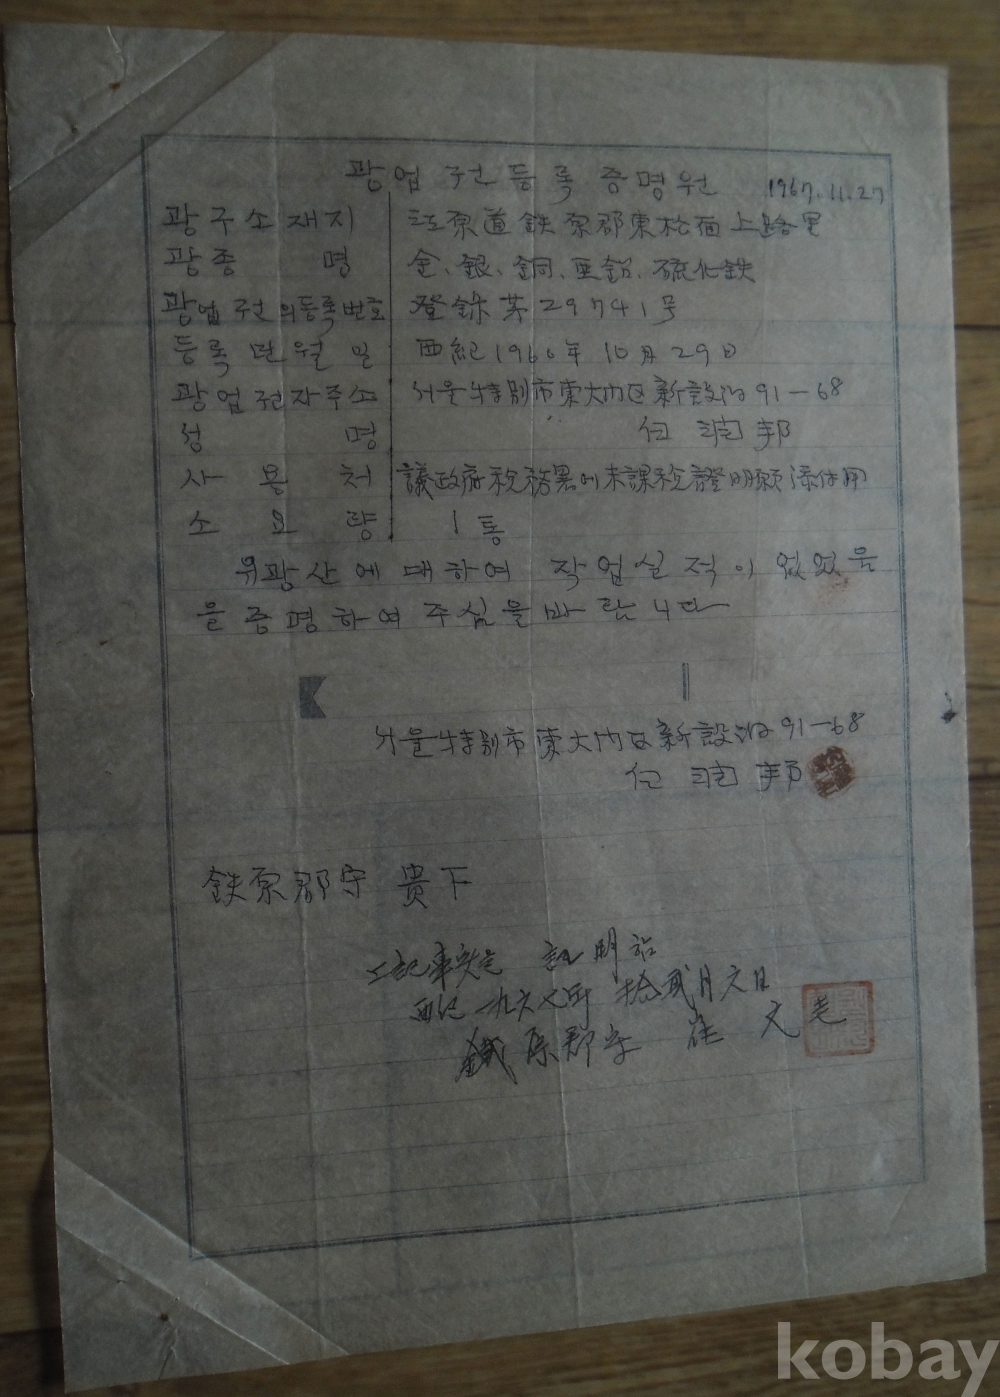 광업권등록증명원 1967.11.27
광구소재지 江原道鉄原郡東松面上路里
광종명 金、銀、銅、亜鉛、硫化鉄
광업권의등록번호 登録第29741号
등록년월일 西紀1960年10月29日
광업권자주소 서울特別市東大门区新設洞91-68
성명 邦
사용처 議政府税務署에未課税證明願添付用
소요량 1통
위광산에대하여 작업실적이없었음
을증명하여주심을바랍니다
서울特別市東大门区新設洞91-68
邦
鉄原郡守 貴下
上記事実을 証明함
西紀 一九六七年 拾貳月六日
鐵原郡守 崔文
kobay